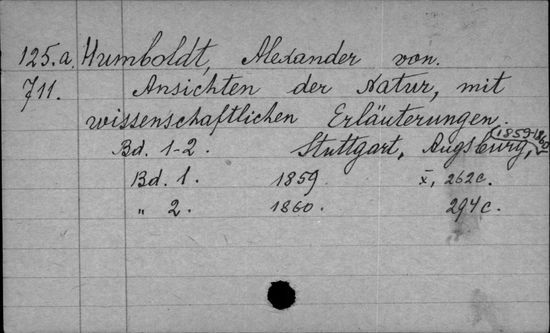 125.a. Humboldt, Alexander von.
711. Ansichten der Natur, mit
wissenschaftlichen Erläuterungen.
Bd. 1-2. Stuttgart, Augsburg, 1859-1860
Bd. 1. 1859. X, 262c.
" 2. 1860. 294c.